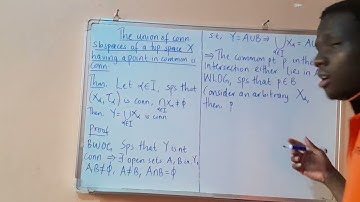 The union of conn
sbspaces of a top space X
having a point in common is
conn
Thm. Let α∈I, sps that
(Xα, Tα) is conn, ⋂Xα≠ϕ
α∈I
Then Y=⋃Xα is conn.
α∈I
Proof
BWOC, Sps that Y is nt
conn ⇒ ∃ open sets A, B in Y,
A,B≠ϕ, A≠B, A∩B=ϕ
st, Y=A∪B ⇒ ⋃Xα = A∪
α∈I
⇒ The common pt p in the
intersection either lies in A
WLOG, sps that p∈B
Consider an arbitrary Xα,
then p